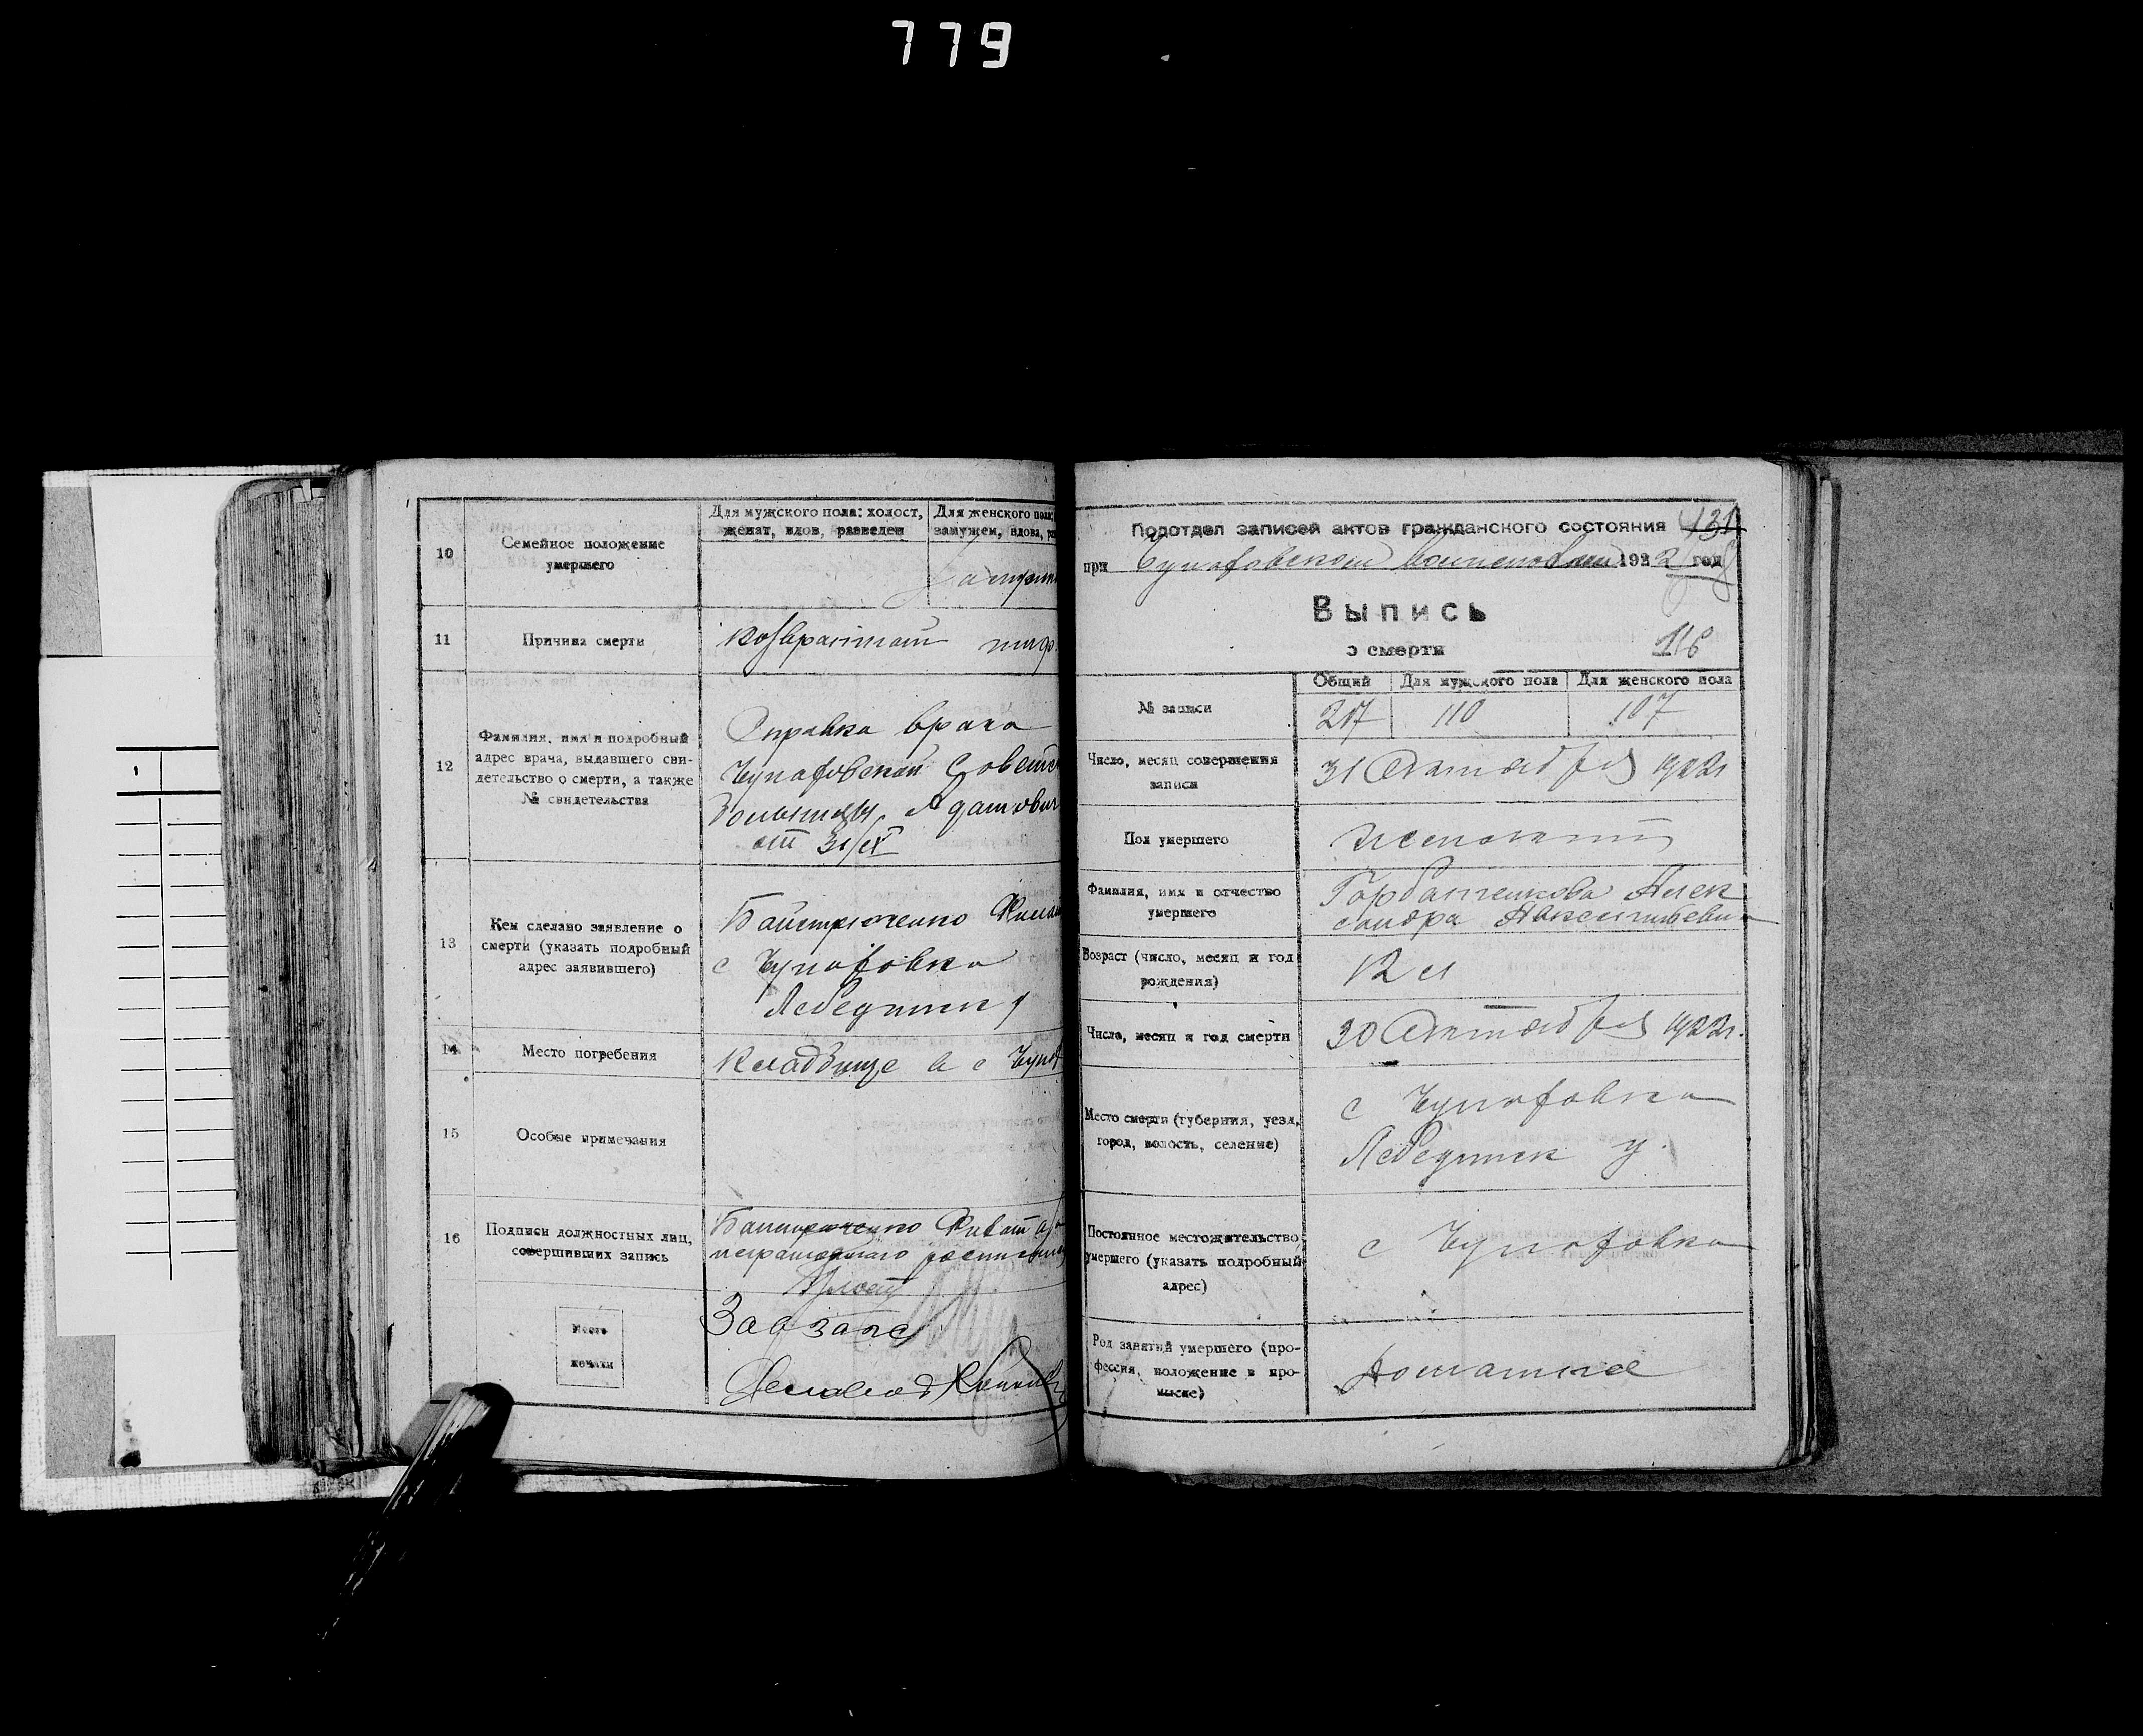 779
10
Семейное положение
умершего
Для мужского пола: холост,
женат, вдов, разведен
Для женского пола:
замужем, вдова, ра
Замуж
11
Причина смерти
Возвратный тиф
12
Фамилия, имя и подробный
адрес врача, выдавшего сви-
детельство о смерти, а также
№ свидетельства
Справка врача
Чупаховской Советск
больницы Адамович
от 31/
13
Кем сделано заявление о
смерти (указать подробный
адрес заявившего)
с Чупаховка
Лебединск у
14
Место погребения
Кладбище в с Чупах
15
Особые примечания
16
Подписи должностных лиц,
совершивших запись
Место
печати
Зав загс
Подотдел записей актов гражданского состояния
131
при Чупаховском волисполкоме 1922 год
Выпись
о смерти
116
№ записи
Общий
Для мужского пола
Для женского пола
217
110
107
Число, месяц совершения
записи
31 Октября 1922г
Пол умершего
женский
Фамилия, имя и отчество
умершего
Алек
сандра
Возраст (число, месяц и год
рождения)
Число, месяц и год смерти
30 Октября 1922г.
Место смерти (губерния, уезд,
город, волость, селение)
с Чупаховка
Лебединск у.
Постоянное местожительство
умершего (указать подробный
адрес)
с Чупаховка
Род занятий умершего (про-
фессия, положение в про-
мысле)
Домашние
1